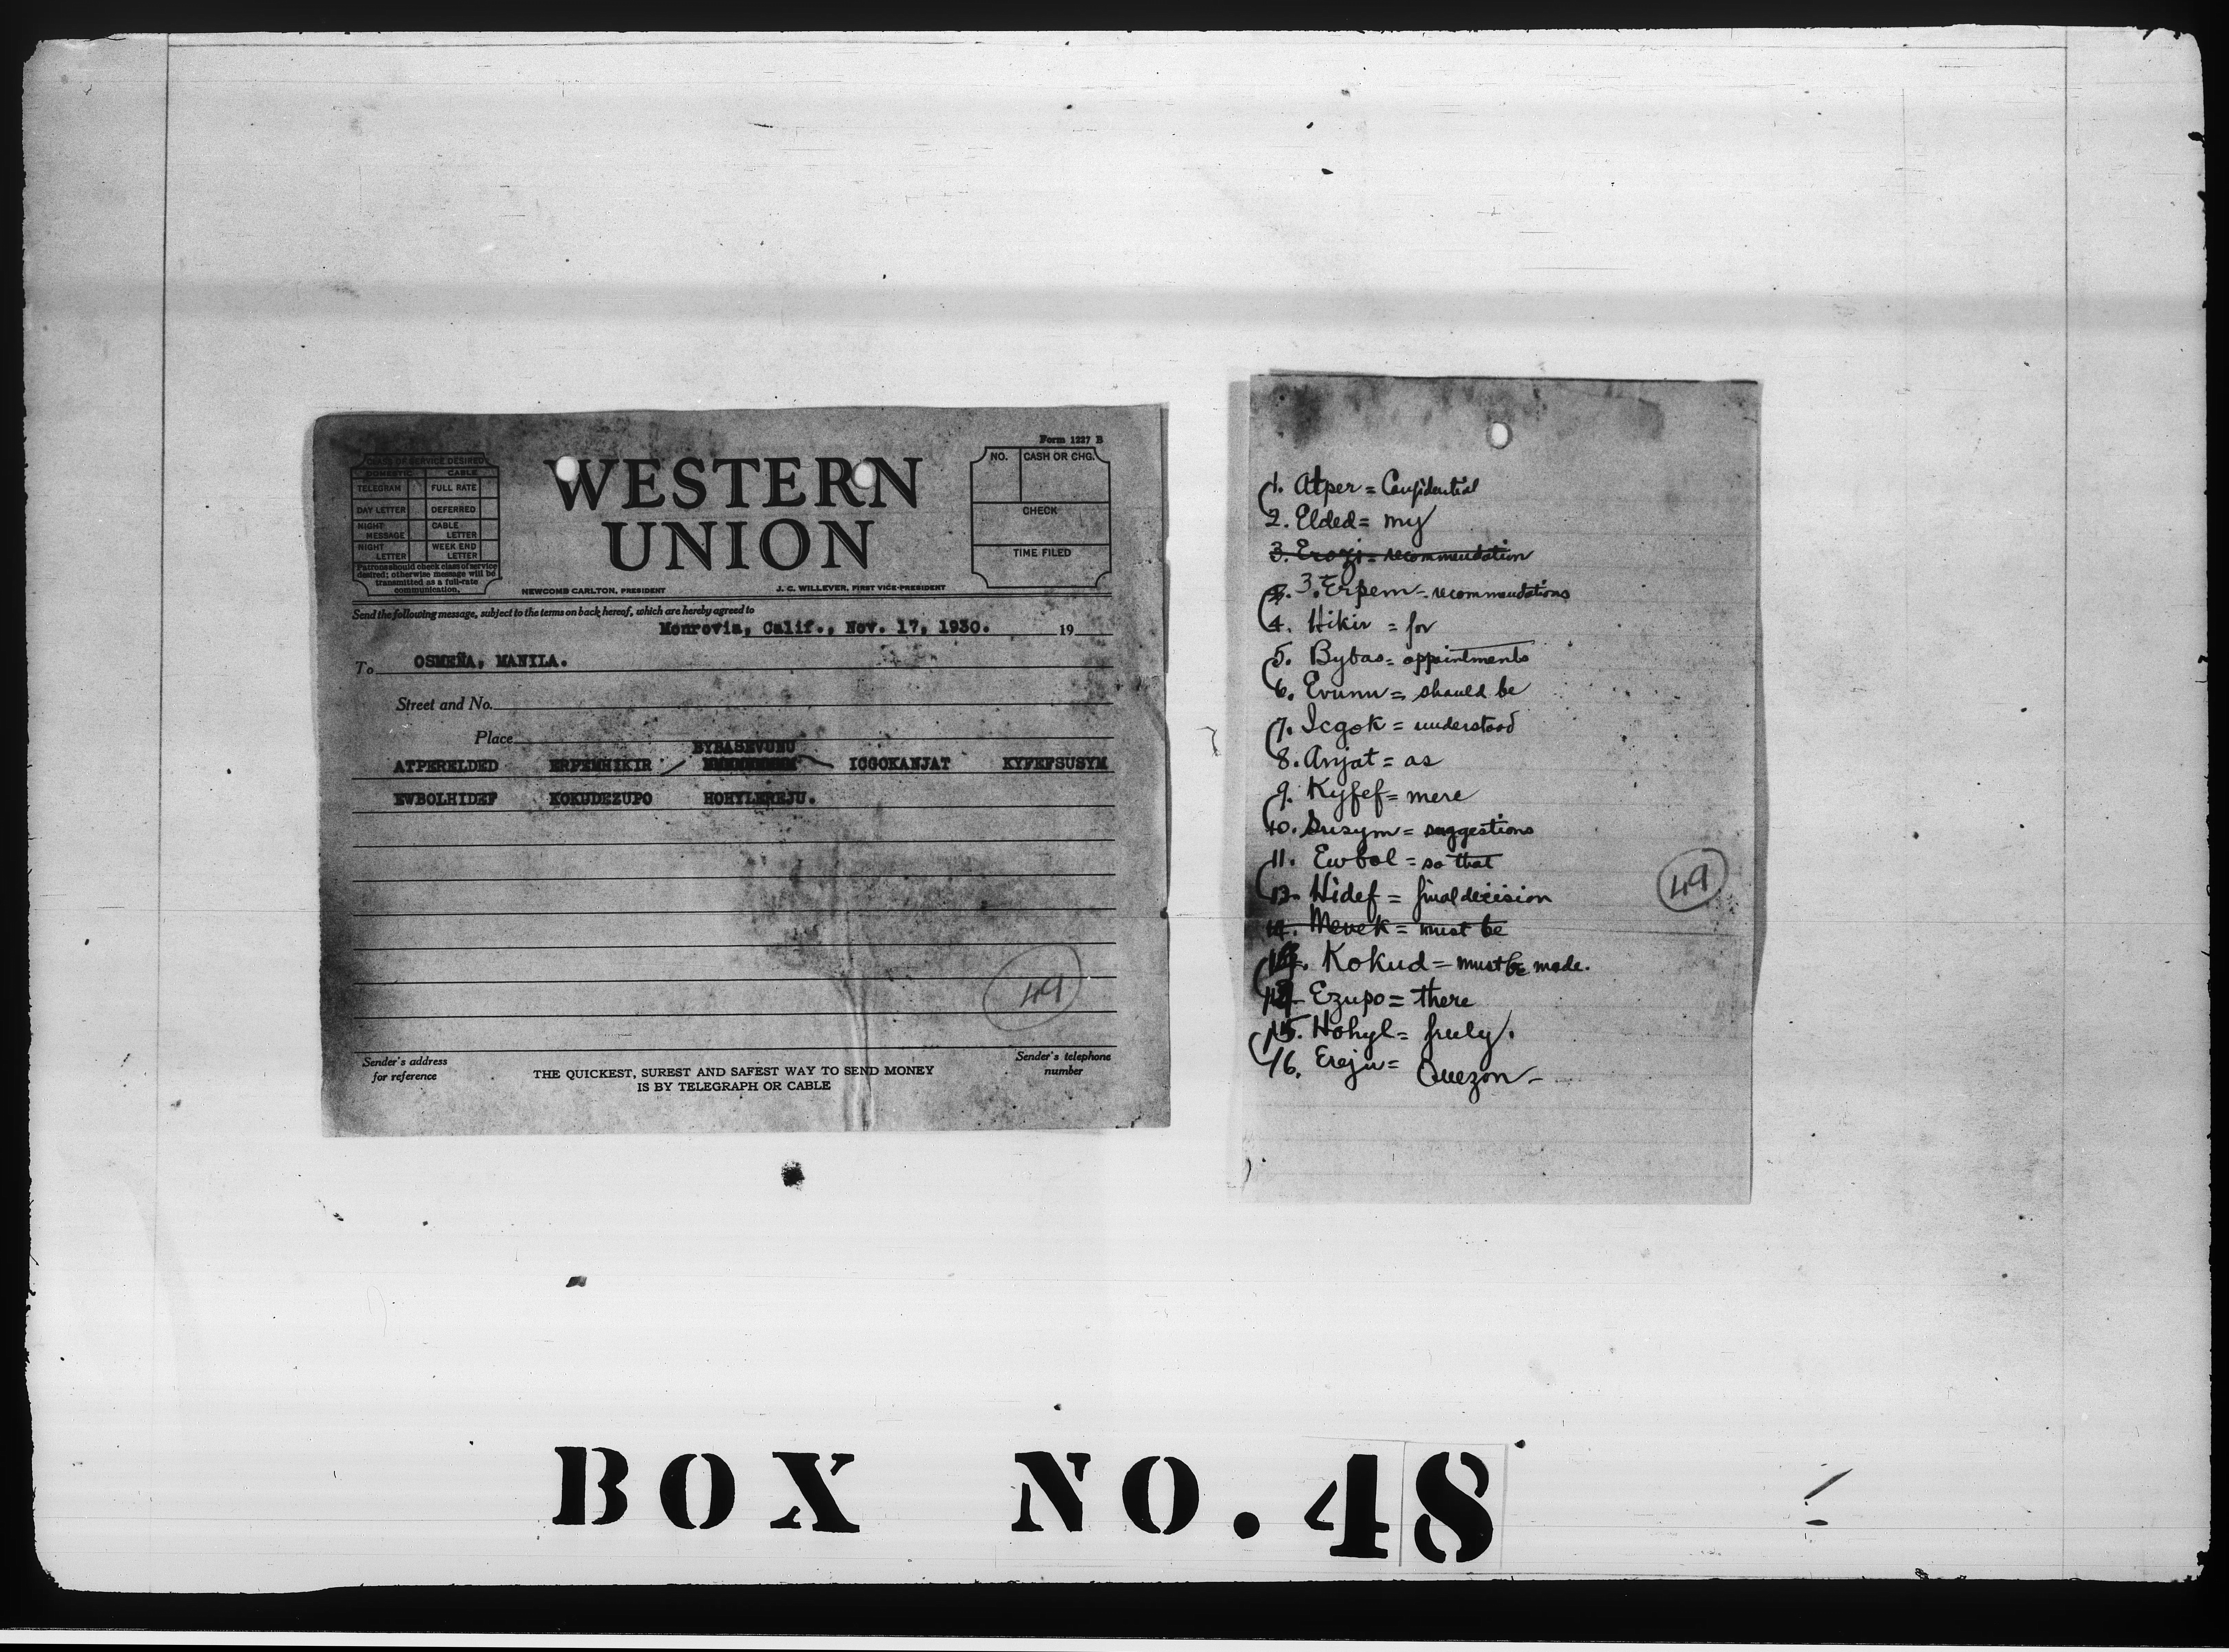 Form 1227 B
CLASS OF SERVICE DESIRED
DOMESTIC CABLE
TELEGRAM FULL RATE
DAY LETTER DEFERRED
NIGHT MESSAGE CABLE LETTER
NIGHT LETTER WEEK END LETTER
Patrons should check class of service
desired; otherwise message will be
transmitted as a full-rate
communication.
WESTERN
UNION
NEWCOMB CARLTON, PRESIDENT J. C. WILLEVER, FIRST VICE-PRESIDENT
NO. CASH OR CHG.
CHECK
TIME FILED
Send the following message, subject to the terms on back hereof, which are hereby agreed to
Monrovia, Calif., Nov. 17, 1930. 19
To OSMEÑA, MANILA.
Street and No.
Place
BYBASEVUNU
ATPERELDED ERPEMHIKIR ICGOKANJAT KYFEFSUSYM
EWBOLHIDEF KOKUDEZUPO HOHYLEREJU.
49
Sender's address
for reference
THE QUICKEST, SUREST AND SAFEST WAY TO SEND MONEY
IS BY TELEGRAPH OR CABLE
Sender's telephone
number
1. Atper = Confidential
2. Elded = my
3. Erozi = recommendation
3. Erpem = recommendations
4. Hikir = for
5. Bybas = appointments
6. Evunu = should be
7. Icgok = understood
8. Anjat = as
9. Kyfef = mere
10. Susym = suggestions
11. Ewbol = so that
12. Hidef = final decision
14. Mevek = must be
Kokud = must be made.
14 Ezupo = there
15. Hohyl = freely.
16. Ereju = Quezon -
49
BOX NO. 48